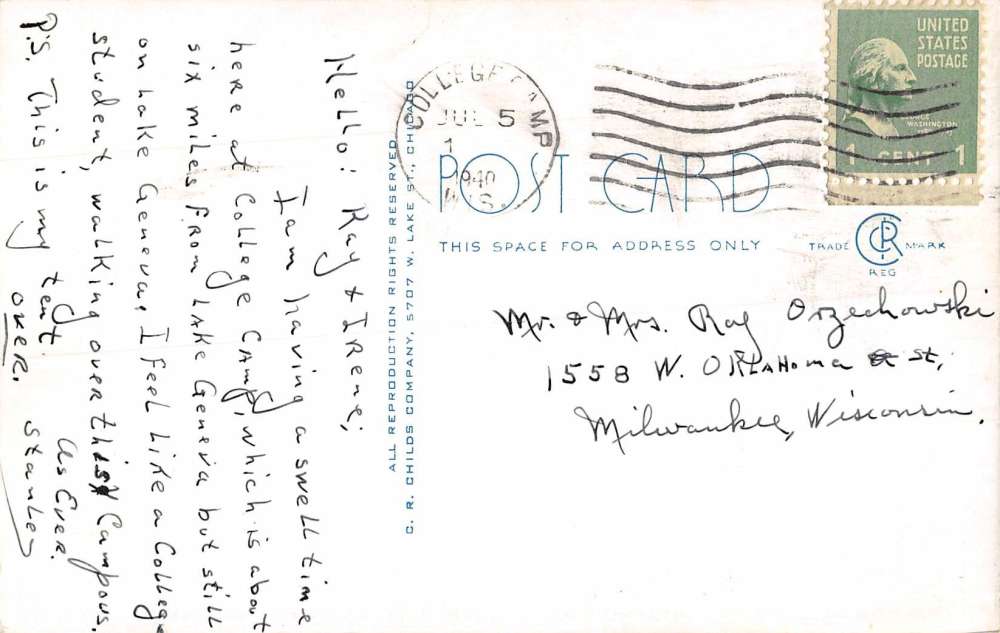 Hello! Ray & IRene;
I am having a swell time
here at College Camp, which is about
six miles From LAKe Geneva but still
on Lake Geneva, I Feel Like a College
student, walking over this Campous.
As Ever.
Stanley
P.S. This is my tent.
OVER.
ALL REPRODUCTION RIGHTS RESERVED
C. R. CHILDS COMPANY, 5707 W. LAKE ST., CHICAGO
COLLEGE CAMP
JUL 5
1
1940
WIS.
UNITED
STATES
POSTAGE
GEORGE
WASHINGTON
1 CENT 1
POST CARD
THIS SPACE FOR ADDRESS ONLY
TRADE CRC MARK
REG
Mr. & Mrs. Ray Orzechowski
1558 W. OKLAHoma St,
Milwaukee, Wisconsin.